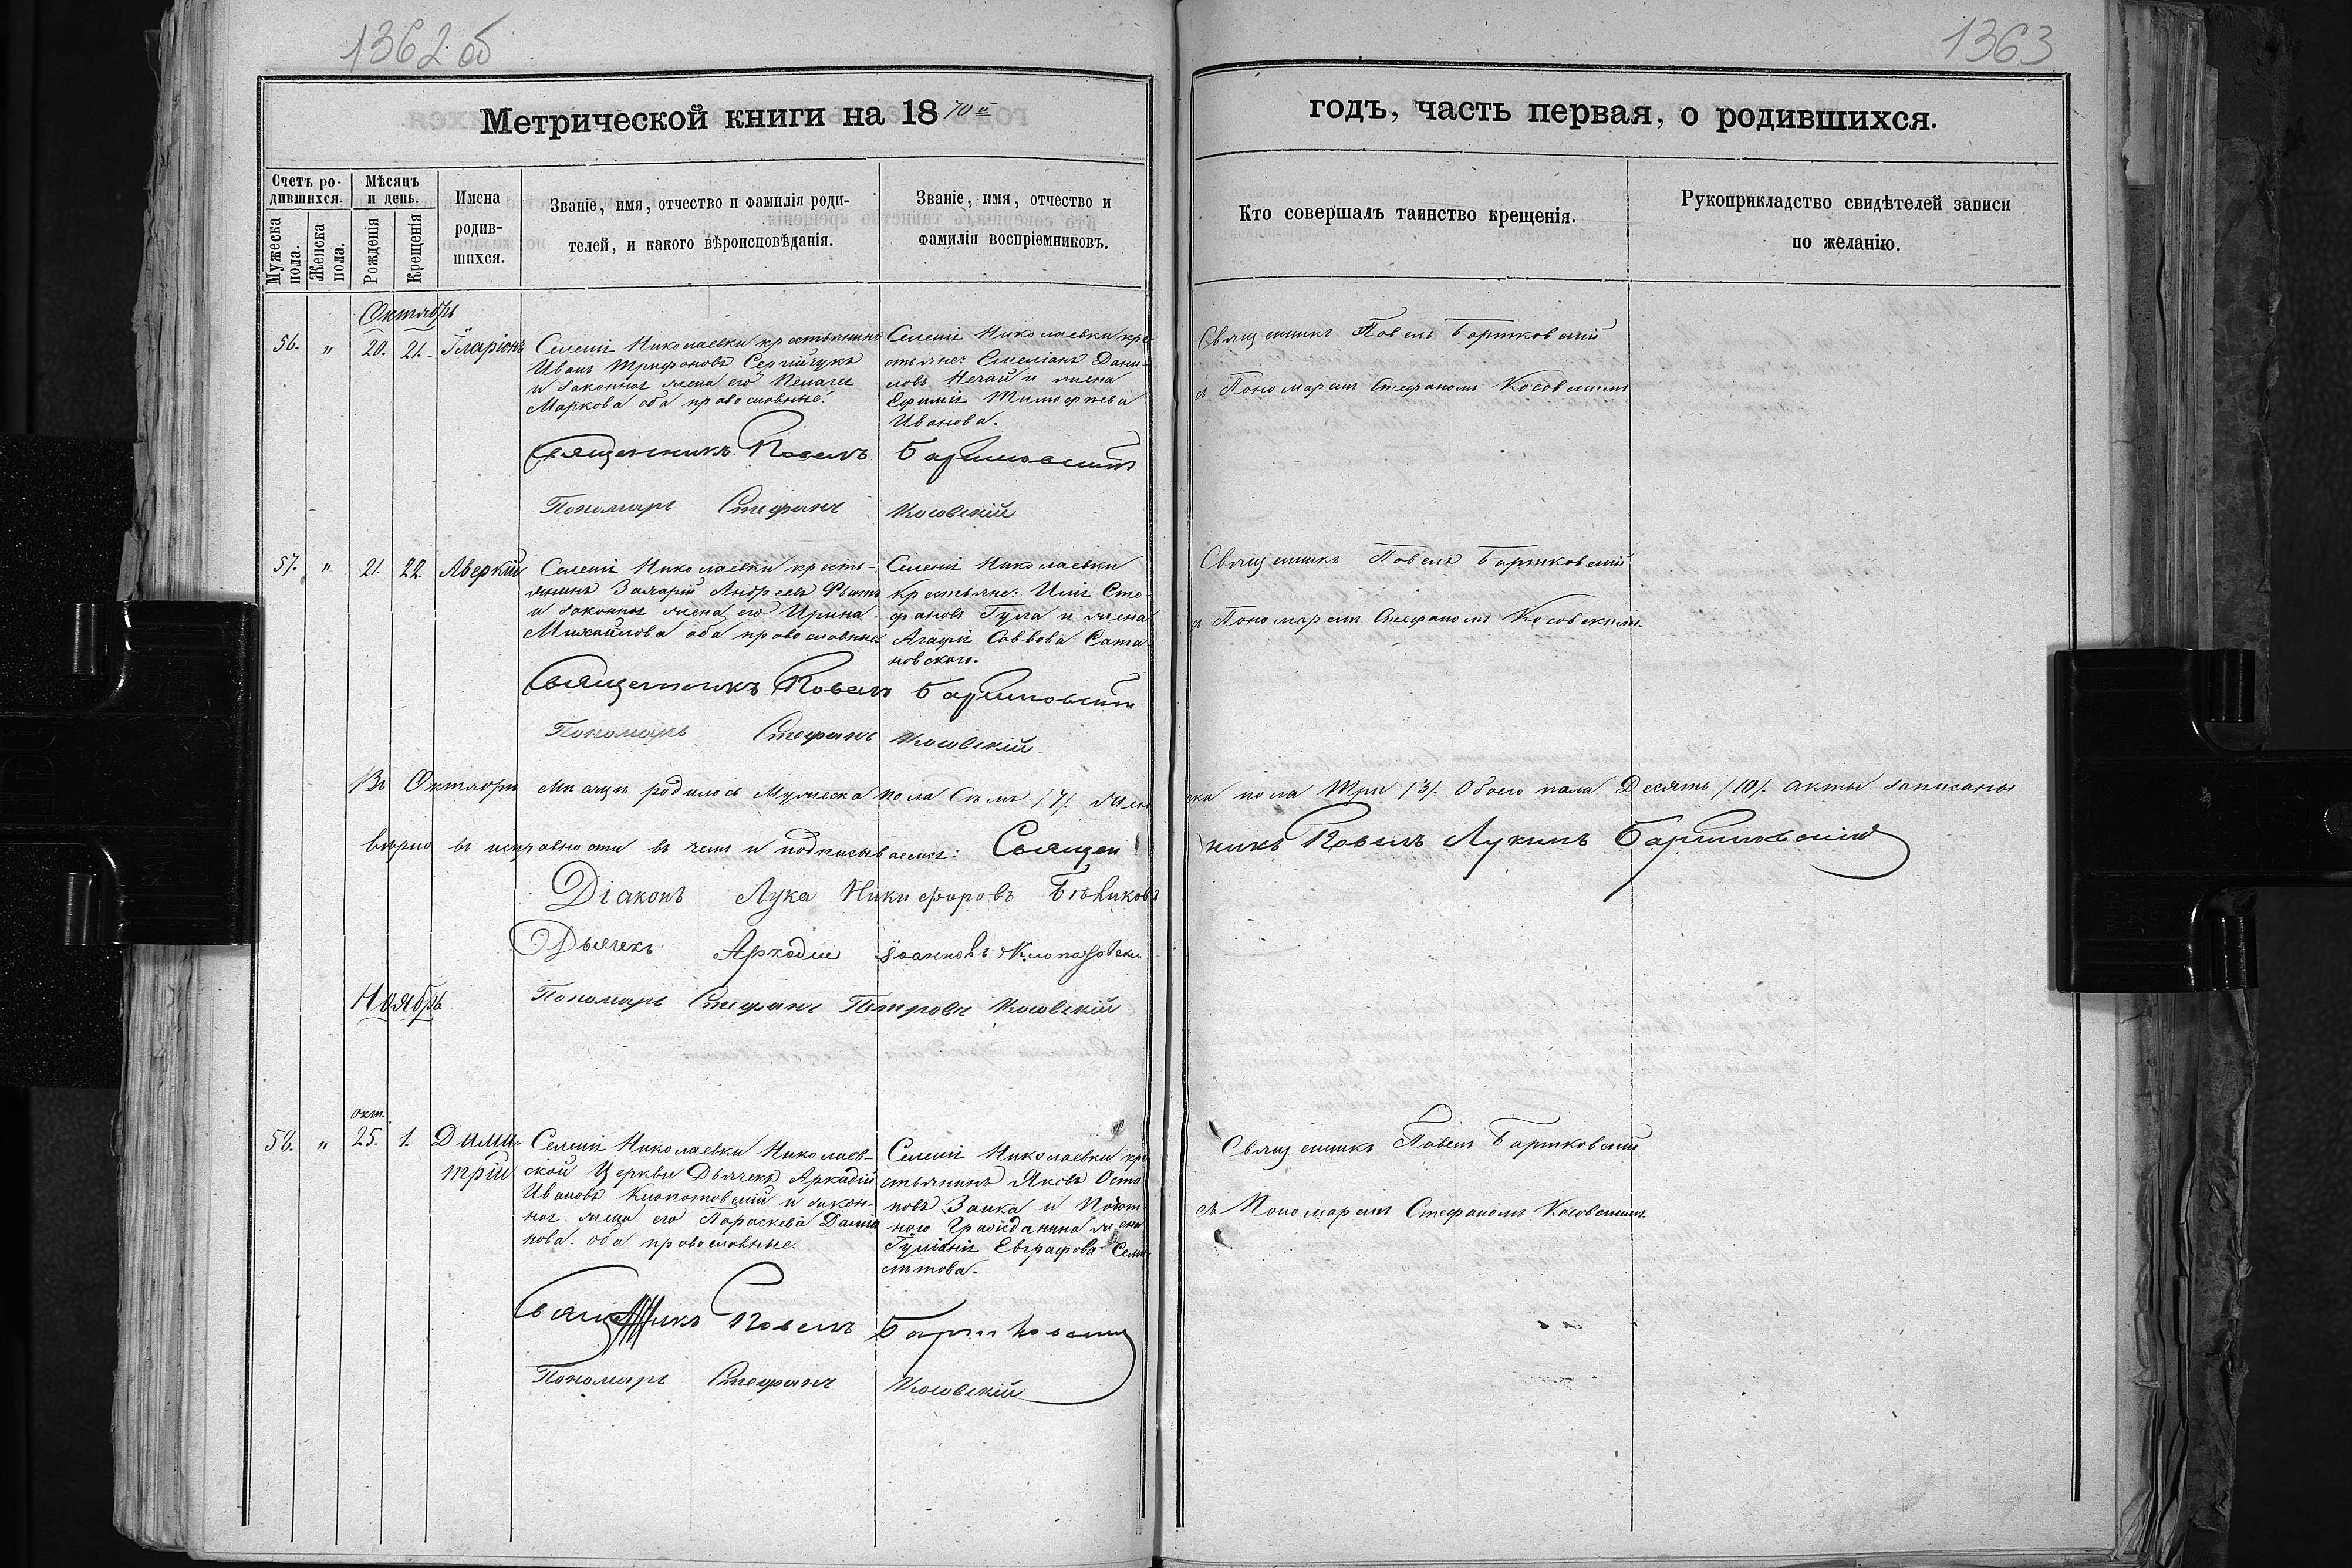 1362 об
1363
Метрической книги на 1870й
годъ, часть первая, о родившихся.
Счетъ родившихся.
Мужеска пола.
Женска пола.
Мѣсяцъ и день.
Рожденія
Крещенія
Имена родившихся.
Званіе, имя, отчество и фамилія роди-
телей, и какого вѣроисповѣданія.
Званіе, имя, отчество и
фамилія воспріемниковъ.
Кто совершалъ таинство крещенія.
Рукоприкладство свидѣтелей записи
по желанію.
Октябрь
56. " 20. 21. Іларіонъ
Селенія Николаевки крестьянинъ
Иванъ Трифоновъ Сергійчукъ
и законная жена его Пелагея
Маркова оба православные.
Селенія Николаевки кре
стьяне: Емеліанъ Дани-
ловъ Нечай и жена
Ефимія Тимофѣева
Иванова.
Священникъ Павелъ Бартковскій
съ Пономаремъ Стефаномъ Косовскимъ
Священникъ Павелъ Бартковскій
Пономарь Стефанъ Косовскій
57. " 21. 22. Аверкій
Селенія Николаевки кресть-
янинъ Захарій Андреевъ
и законная жена его Ирина
Михайлова оба православные
Селенія Николаевки
крестьяне: Илія Сте-
фановъ Гула и жена
Агафія Саввова Сата-
новского.
Священникъ Павелъ Бартковскій
съ Пономаремъ Стефаномъ Косовскимъ
Священникъ Павелъ Бартковскій
Пономарь Стефанъ Косовскій
Въ Октябрѣ мѣсяцѣ родилось Мужеска пола Семь /7/. Жен
ска пола Три /3/. Обоего пола Десять /10/. акты записаны
вѣрно въ исправности въ чемъ и подписываемся: Священ
никъ Павелъ Лукинъ Бартковскій
Діаконъ Лука Никифоровъ Бѣликовъ
Дьячекъ Аркадій Іоанновъ Клопотовскій
Пономарь Стефанъ Петровъ Косовскій
Ноябрь
окт.
58. " 25. 1. Дими-
трій
Селенія Николаевки Николаев-
ской Церкви Дьячекъ Аркадій
Ивановъ Клопотовскій и закон-
ная жена его Параскева Даміа
нова. оба православные.
Селенія Николаевки кре
стьянинъ Яковъ Оста
повъ Заика и Почот-
ного Гражданина жена
Іуліанія Евграфова
Священникъ Павелъ Бартковскій
съ Пономаремъ Стефаномъ Косовскимъ
Священникъ Павелъ Бартковскій
Пономарь Стефанъ Косовскій